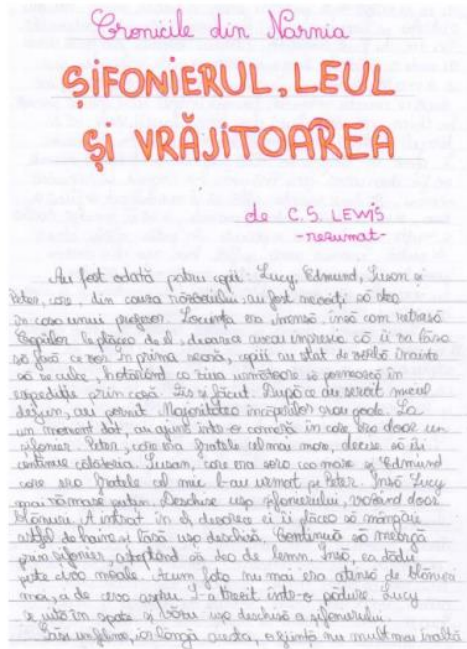 Cronicile din Narnia
ȘIFONIERUL, LEUL
ȘI VRĂJITOAREA
de C.S. LEWIS
-rezumat-
Au fost odată patru copii: Lucy, Edmund, Susan și
Peter, care, din cauza războiului, au fost nevoiți să stea
în casa unui profesor. Locuința era imensă, însă cam retrasă.
Copiilor le plăcea de el, deoarece aveau impresia că îi va lăsa
să facă ce vor. În prima seară, copiii au stat de vorbă înainte
să se culce, hotărând ca ziua următoare să pornească în
expediție prin casă. Zis și făcut. După ce au servit micul
dejun, au pornit. Majoritatea încăperilor erau goale. La
un moment dat, au ajuns într-o cameră în care era doar un
șifonier. Peter, care era fratele cel mai mare, decise să își
continue călătoria. Susan, care era sora cea mare și Edmund
care era fratele cel mic l-au urmat pe Peter. Însă Lucy
mai rămase puțin. Deschise ușa șifonierului, văzând doar
blănuri. A intrat în el, deoarece ei îi plăcea să mângâie
astfel de haine și lăsă ușa deschisă. Continuă să meargă
prin șifonier, așteptând să dea de lemn. Însă, ea dădu
peste ceva moale. Acum fața nu mai era atinsă de blănuri
moi, a de ceva aspru. S-a trezit într-o pădure. Lucy
se uită în spate și văzu ușa deschisă a șifonierului.
Găsi un felinar, iar lângă acesta, o ființă nu mult mai înaltă